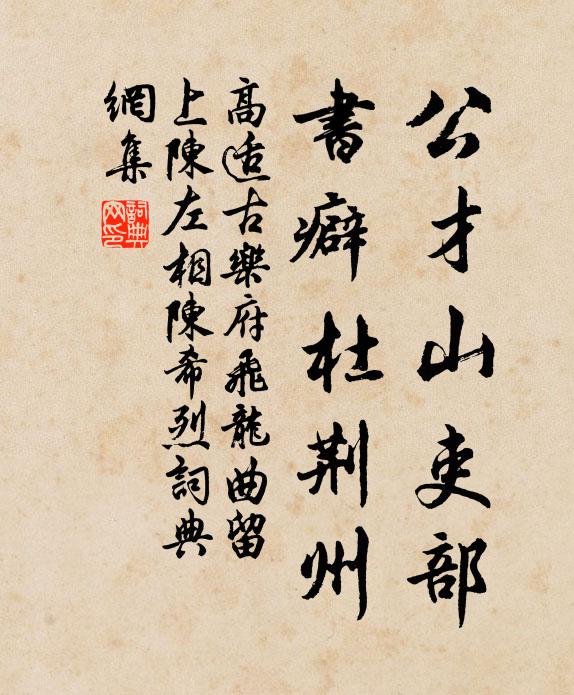 公才山吏部
書癖杜荆州
高适古樂府飛龍曲留
上陳左相陳希烈詞典
網集
詞典網印